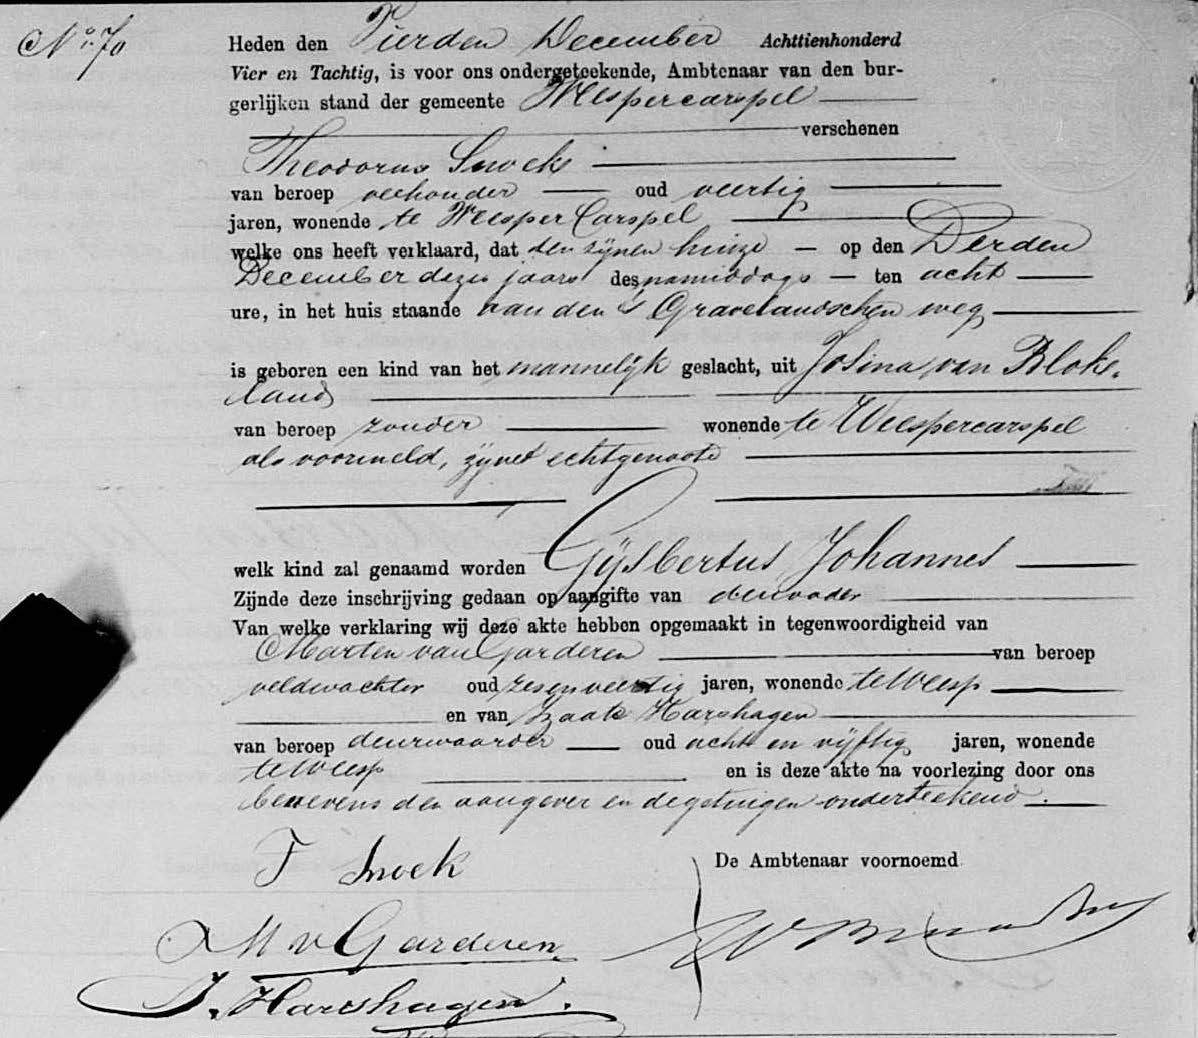 No. 70
Heden den Vierden December Achttienhonderd
Vier en Tachtig, is voor ons ondergeteekende, Ambtenaar van den bur-
gerlijken stand der gemeente Weespercarspel
verschenen
Theodorus Snoek
van beroep veehouder oud veertig
jaren, wonende te Weesper Carspel
welke ons heeft verklaard, dat ten zijnen huize op den Derden
December dezes jaars des namiddags ten acht
ure, in het huis staande aan den 's Gravelandschen weg
is geboren een kind van het mannelijk geslacht, uit Josina van Bloke-
land
van beroep zonder wonende te Weespercarspel
als voormeld, zijne echtgenoote
welk kind zal genaamd worden Gijsbertus Johannes
Zijnde deze inschrijving gedaan op aangifte van den vader
Van welke verklaring wij deze akte hebben opgemaakt in tegenwoordigheid van
Marten van Garderen van beroep
veldwachter oud zesenveertig jaren, wonende te Weesp
en van Izaak Harshagen
van beroep deurwaarder oud acht en vijftig jaren, wonende
te Weesp en is deze akte na voorlezing door ons
benevens den aangever en de getuigen onderteekend.
T Snoek
De Ambtenaar voornoemd
M v Garderen
I. Harshagen.